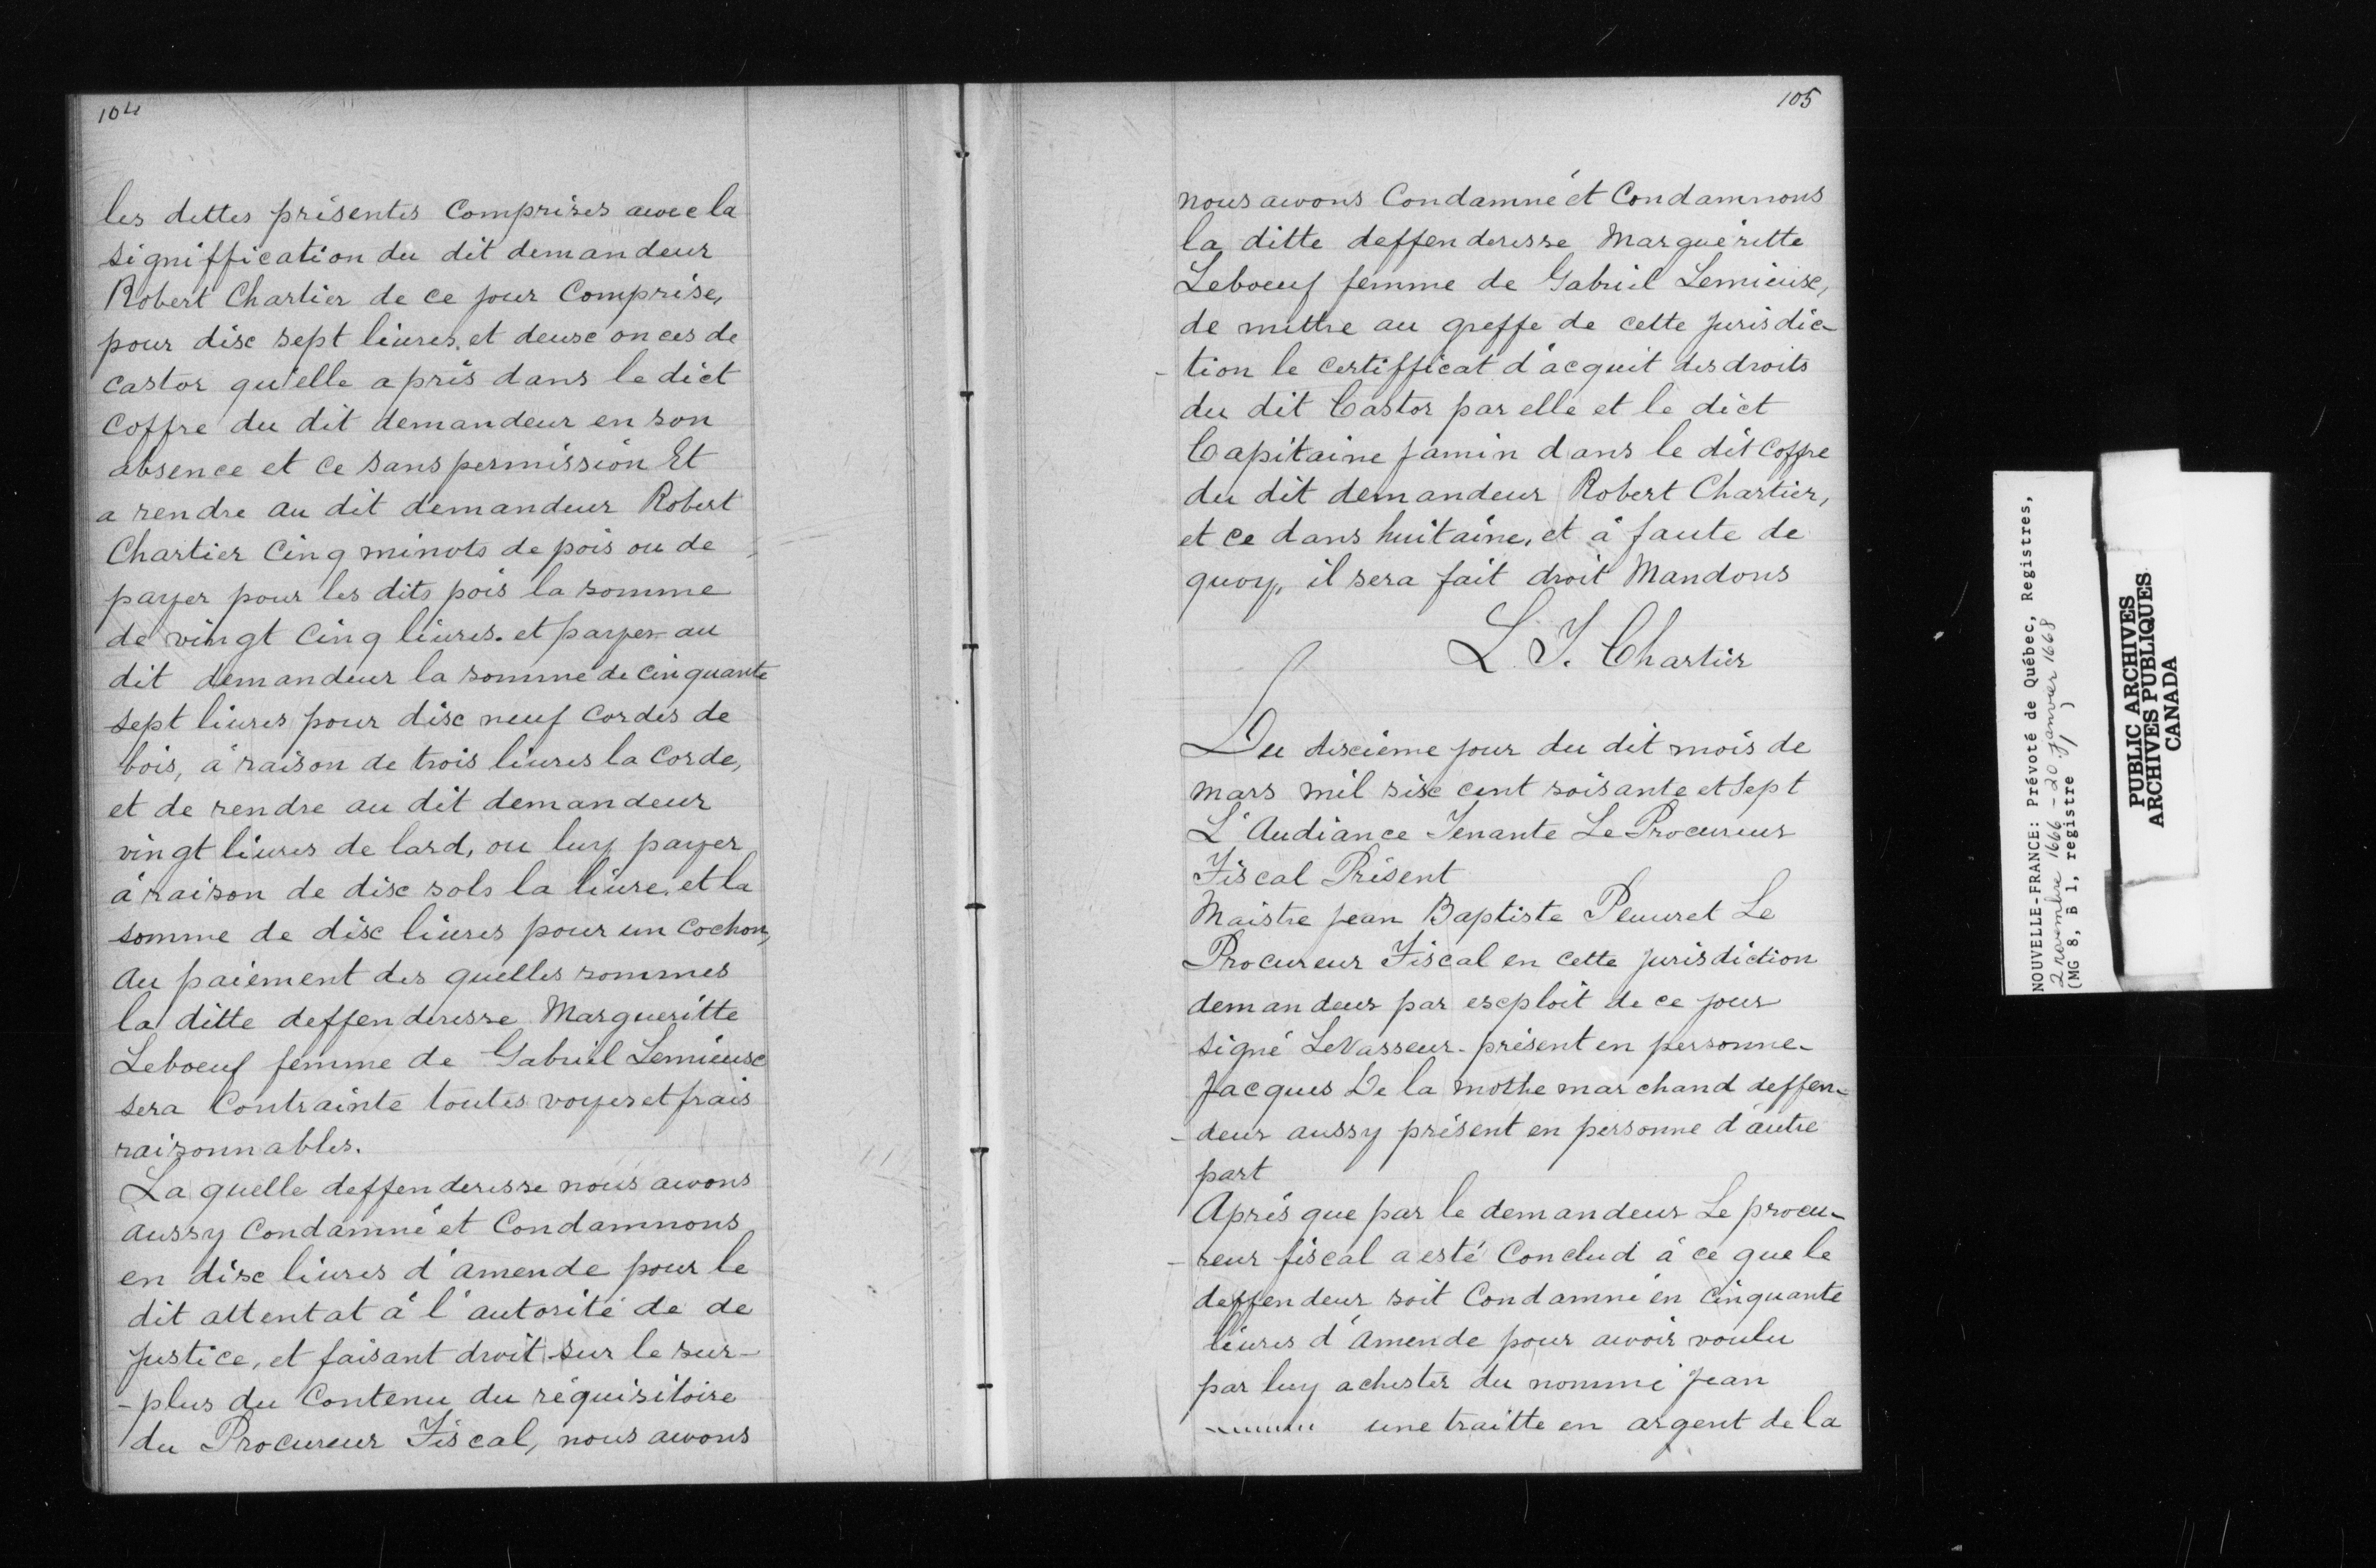 104
les dettes présentes Comprises avec la
signiffication du dit demandeur
Robert Chartier de ce jour Comprise,
pour dix sept liures, et deux onces de
castor qu'elle a pris dans le dict
Coffre du dit demandeur en son
absence et ce sans permission Et
a rendre au dit demandeur Robert
Chartier Cinq minots de pois ou de
payer pour les dits pois la somme
de vingt Cinq liures. et payer au
dit demandeur la somme de cinquante
sept liures pour dix neuf Cordes de
bois, à raison de trois liures la Corde,
et de rendre au dit demandeur
vingt liures de lard, ou luy payer
à raison de dix sols la liure, et la
somme de dix liures pour un Cochon,
Au paiement des quelles sommes
la ditte deffenderesse Margueritte
Leboeuf femme de Gabriel Lemieux
sera Contrainte toutes voyes et frais
raisonnables.
La quelle deffenderesse nous avons
aussy Condamné et Condamnons
en dix liures d'amende pour le
dit attentat à l'autorité de de
Justice, et faisant droit sur le sur-
-plus du Contenu du réquisitoire
du Procureur Fiscal, nous avons
105
nous avons Condamné et Condamnons
la ditte deffenderesse Marguéritte
Leboeuf femme de Gabriel Lemieux,
de mettre au greffe de cette Jurisdic-
-tion le certifficat d'acquit des droits
du dit Castor par elle et le dict
Capitaine Jamin dans le dit Coffre
du dit demandeur Robert Chartier,
et ce dans huitaine, et à faute de
quoy, il sera fait droit Mandons
L. T. Chartier
Du dixième jour du dit mois de
mars mil six cent soisante et Sept
L'Audiance Tenante Le Procureur
Fiscal Présent
Maistre Jean Baptiste Peuuret Le
Procureur Fiscal en cette Jurisdiction
demandeur par exploit de ce jour
signé LeVasseur - présent en personne -
Jacques De la mothe marchand deffen-
-deur aussy présent en personne d'autre
part
Après que par le demandeur Le procu-
-reur fiscal a esté Conclud à ce que le
deffendeur soit Condamné en Cinquante
liures d'Amende pour avoir voulu
par luy achester du nommé Jean
une traitte en argent de la
NOUVELLE-FRANCE: Prévoté de Québec, Registres,
2 novembre 1666 - 20 janvier 1668
(MG 8, B 1, registre 1)
PUBLIC ARCHIVES
ARCHIVES PUBLIQUES
CANADA